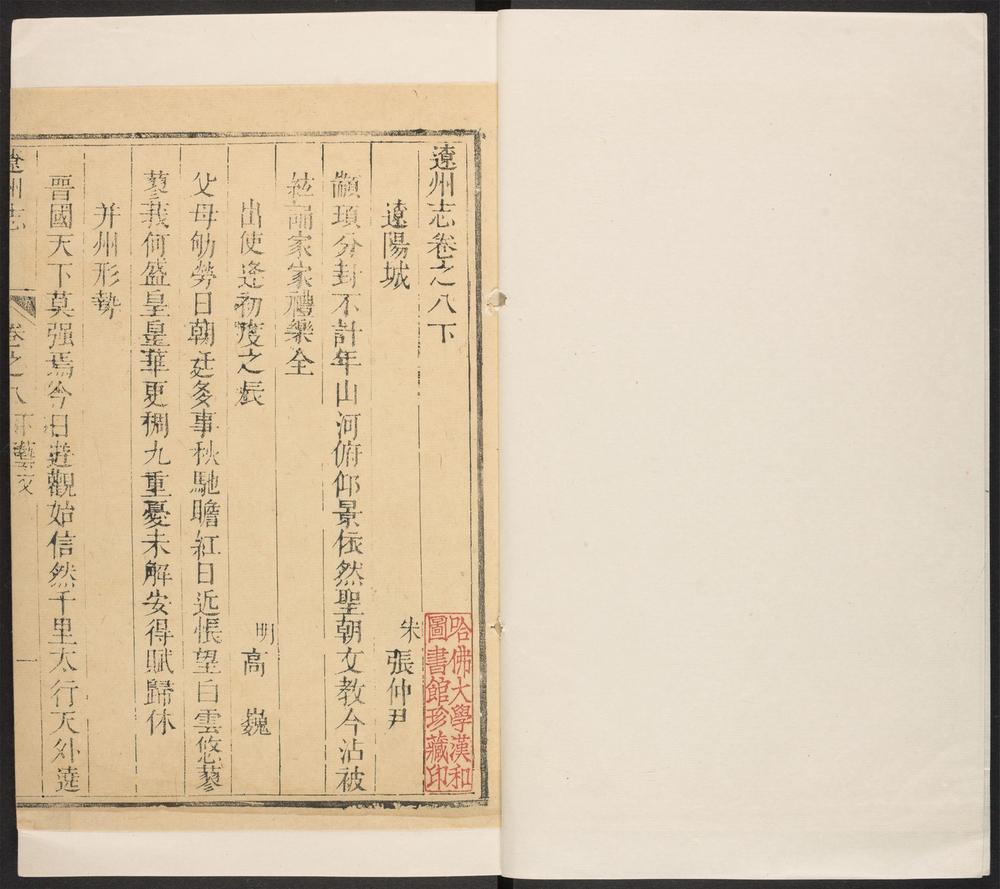 遼州志卷之八下
哈佛大學漢和
圖書館珍藏印
遼陽城
宋 張仲尹
顓頊分封不計年山河俯仰景依然聖朝文教今沾被
絃誦家家禮樂全
出使逢初度之辰
明 高 巍
父母劬勞日朝廷多事秋馳瞻紅日近悵望白雲悠蓼
蓼莪何盛皇皇華更稠九重憂未解安得賦歸休
并州形勢
晉國天下莫强焉今日遊觀始信然千里太行天外遶
遼州志
卷之八下藝文
一